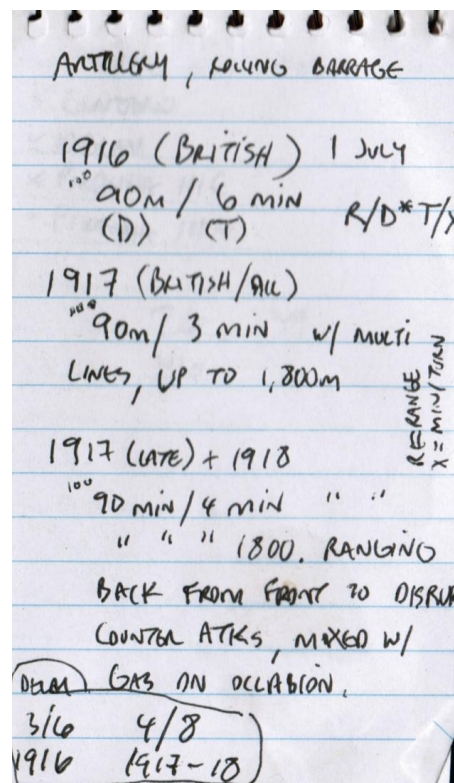 ARTILLERY, ROLLING BARRAGE
1916 (BRITISH) 1 JULY
100
90M / 6 MIN
(D) (T)
R/D*T/X
1917 (BRITISH/ALL)
100
90m / 3 MIN W/ MULTI
LINES, UP TO 1,800M
R=RANGE
X=MIN/TURN
1917 (LATE) + 1918
100
90 MIN / 4 MIN " "
" " " 1800. RANGING
BACK FROM FRONT TO DISRUP
COUNTER ATKS, MIXED W/
GAS ON OCCASION.
3/6 4/8
1916 1917-18